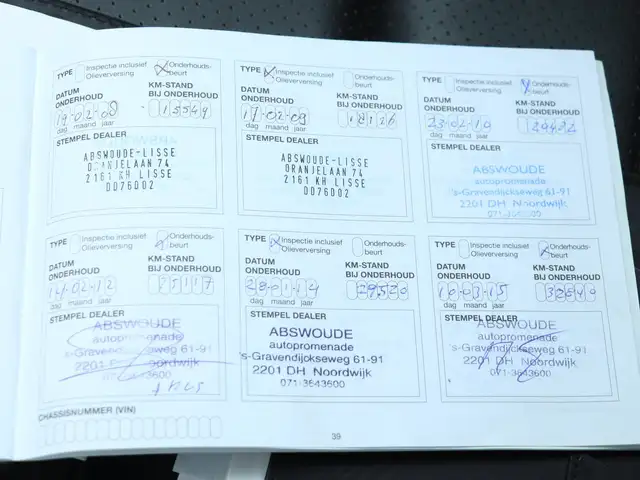 TYPE Inspectie inclusief Olieverversing Onderhouds- beurt
DATUM ONDERHOUD KM-STAND BIJ ONDERHOUD
19-02-08 15549
dag maand jaar
STEMPEL DEALER
ABSWOUDE-LISSE
ORANJELAAN 74
2161 KH LISSE
DD76D02
TYPE Inspectie inclusief Olieverversing Onderhouds- beurt
DATUM ONDERHOUD KM-STAND BIJ ONDERHOUD
17-02-09 18126
dag maand jaar
STEMPEL DEALER
ABSWOUDE-LISSE
ORANJELAAN 74
2161 KH LISSE
DD76D02
TYPE Inspectie inclusief Olieverversing Onderhouds- beurt
DATUM ONDERHOUD KM-STAND BIJ ONDERHOUD
23-02-10
dag maand jaar
STEMPEL DEALER
ABSWOUDE
autopromenade
's-Gravendijckseweg 61-91
2201 DH Noordwijk
071-3643600
TYPE Inspectie inclusief Olieverversing Onderhouds- beurt
DATUM ONDERHOUD KM-STAND BIJ ONDERHOUD
14-02-12 25117
dag maand jaar
STEMPEL DEALER
ABSWOUDE
autopromenade
's-Gravendijckseweg 61-91
2201 DH Noordwijk
071-3643600
TYPE Inspectie inclusief Olieverversing Onderhouds- beurt
DATUM ONDERHOUD KM-STAND BIJ ONDERHOUD
28-01-14 29520
dag maand jaar
STEMPEL DEALER
ABSWOUDE
autopromenade
's-Gravendijckseweg 61-91
2201 DH Noordwijk
071-3643600
TYPE Inspectie inclusief Olieverversing Onderhouds- beurt
DATUM ONDERHOUD KM-STAND BIJ ONDERHOUD
10-03-15 32549
dag maand jaar
STEMPEL DEALER
ABSWOUDE
autopromenade
's-Gravendijckseweg 61-91
2201 DH Noordwijk
071-3643600
CHASSISNUMMER (VIN)
39